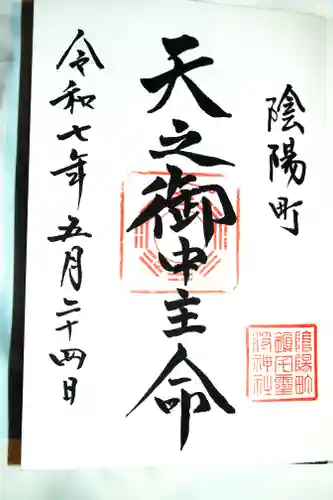 陰陽町
天之御中主命
令和七年五月二十四日
陰陽町
鎮宅霊
符神社